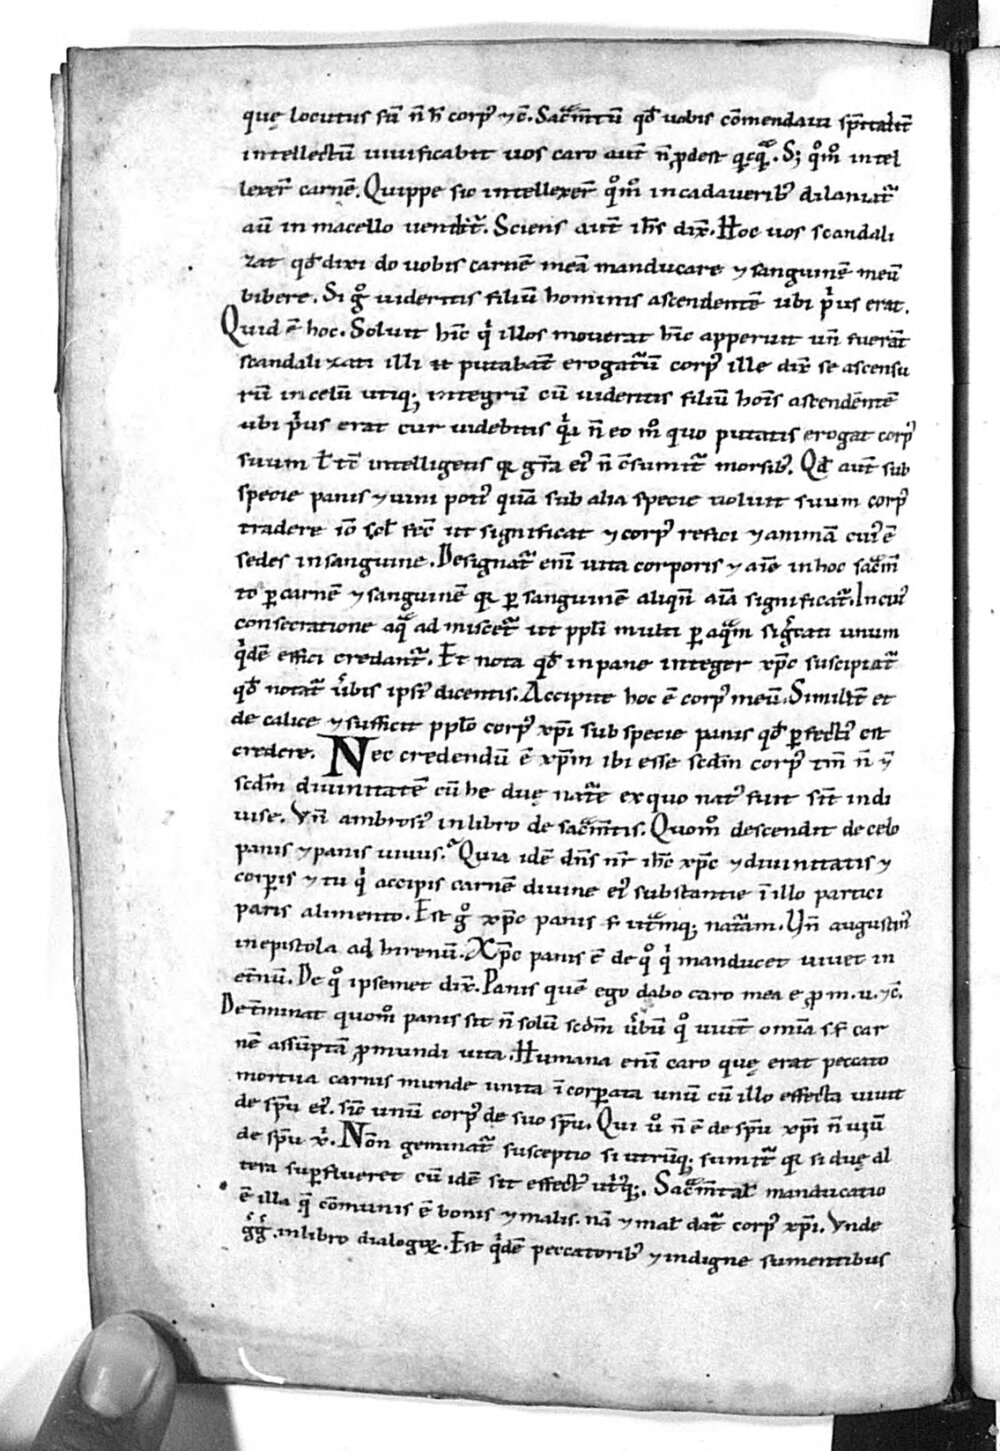 quę locutus sū n̄ h̄ corpꝰ ⁊c̄. Sac̄mtū qđ uobis cōmendaui sp̄ritalit̄
intellectū uiuificabit uos caro aut̄ n̄ ꝓdest qͥcqͣ. Sꝫ qͦmͦ intel
lexer̄ carnē. Quippe sic intellexer̄ qͦmͦ in cadaueribꝰ dilaniat᷑
aū in macello uendit᷑. Sciens aut̄ ih̄s dix̄. Hoc uos scandali
zat qđ dixi do uobis carnē meā manducare ⁊ sanguinē meū
bibere. Si gͦ uideritis filiū hominis ascendentē ubi pͥus erat.
Quid ē hoc. Soluit hīc qͥ illos mouerat hīc apperuit un̄ fuerāt
scandalizati illi .n. putabāt erogatuꝝ corpꝰ ille dix̄ se ascensu
rū in celū utiqꝫ integrū cū uideritis filiū hoīs ascendentē
ubi pͥus erat cur uidebitis qͥ n̄ eo mͦ quo putatis erogat corpꝰ
suum ł tc̄ intelligetis qꝛ gr̄a eiꝰ n̄ c̄sumit᷑ morsibꝰ. Qđ aut̄ sub
specie panis ⁊ uini potiꝰ quā sub alia specie uoluit suum corpꝰ
tradere iō fec̄ ut significat ⁊ corpꝰ refici ⁊ animā cuiꝰ ē
sedes in sanguine. Designat᷑ enī uita corporis ⁊ aīe in hoc sac̄m
to ꝑ carnē ⁊ sanguinē qꝛ ꝑ sanguinē aliqn̄ aīa significat᷑. In cuiꝰ
consecratione aqͣ admiscet᷑ ut pp̄li multi ꝑ aqͣm sigͥtati unum
qͥdē effici credant᷑. Et nota qđ in pane integer xp̄c suscipiat᷑
qđ notat᷑ ūbis ipsiꝰ dicentis. Accipite hoc ē corpꝰ meū. Similit̄ et
de calice ⁊ sufficit pp̄lo corpꝰ xp̄i sub specie panis qđ ꝑfectiꝰ est
credere. Nec credendū ē xp̄m ibi esse sc̄dm corpꝰ tm̄ n̄ ⁊
sc̄dm diuinitatē cū he duę nat᷑e ex quo natꝰ fuit sīt indi
uise. Vn̄ ambrosiꝰ in libro de sac̄mtis. Quomͦ descendit de celo
panis ⁊ panis uiuus. Quia idē dn̄s nr̄ ih̄c xp̄c ⁊ diuinitatis ⁊
corporis ⁊ tu qͥ accipis carnē diuine eiꝰ substantie ī illo partici
paris alimento. Est gͦ xp̄c panis s. ut᷑mqꝫ nat᷑am. Vn̄ augustinꝰ
in epistola ad hirenū. Xp̄c panis ē de qͦ qͥ manducet uiuet in
et̄nū. De qͦ ipsemet dix̄. Panis quē ego dabo caro mea e ꝓ m. u. ⁊c̄.
Det̄minat quomͦ panis sit n̄ solū sc̄dm ūbū qͦ uiuūt omīa s. s. car
nē assūptā ꝓ mundi uita. Humana enī caro quę erat peccato
mortua carni munde unita īcorporata unū cū illo effecta uiuit
de sp̄u eiꝰ. sic̄ unū corpꝰ de suo sp̄u. Qui uͦ n̄ ē de sp̄u xp̄i n̄ uiuit
de sp̄u x̄. Non geminat᷑ susceptio si utrūqꝫ sumit᷑ qꝛ si duę al
tera suꝑflueret cū idē sit effectꝰ ut᷑qꝫ. Sac̄mtał manducatio
ē illa qͥ cōmunis ē bonis ⁊ malis. nā ⁊ mał dat᷑ corpꝰ xp̄i. Vnde
gͥgͥ. in libro dialogoꝝ. Est qͥdē peccatoribꝰ ⁊ indigne sumentibus